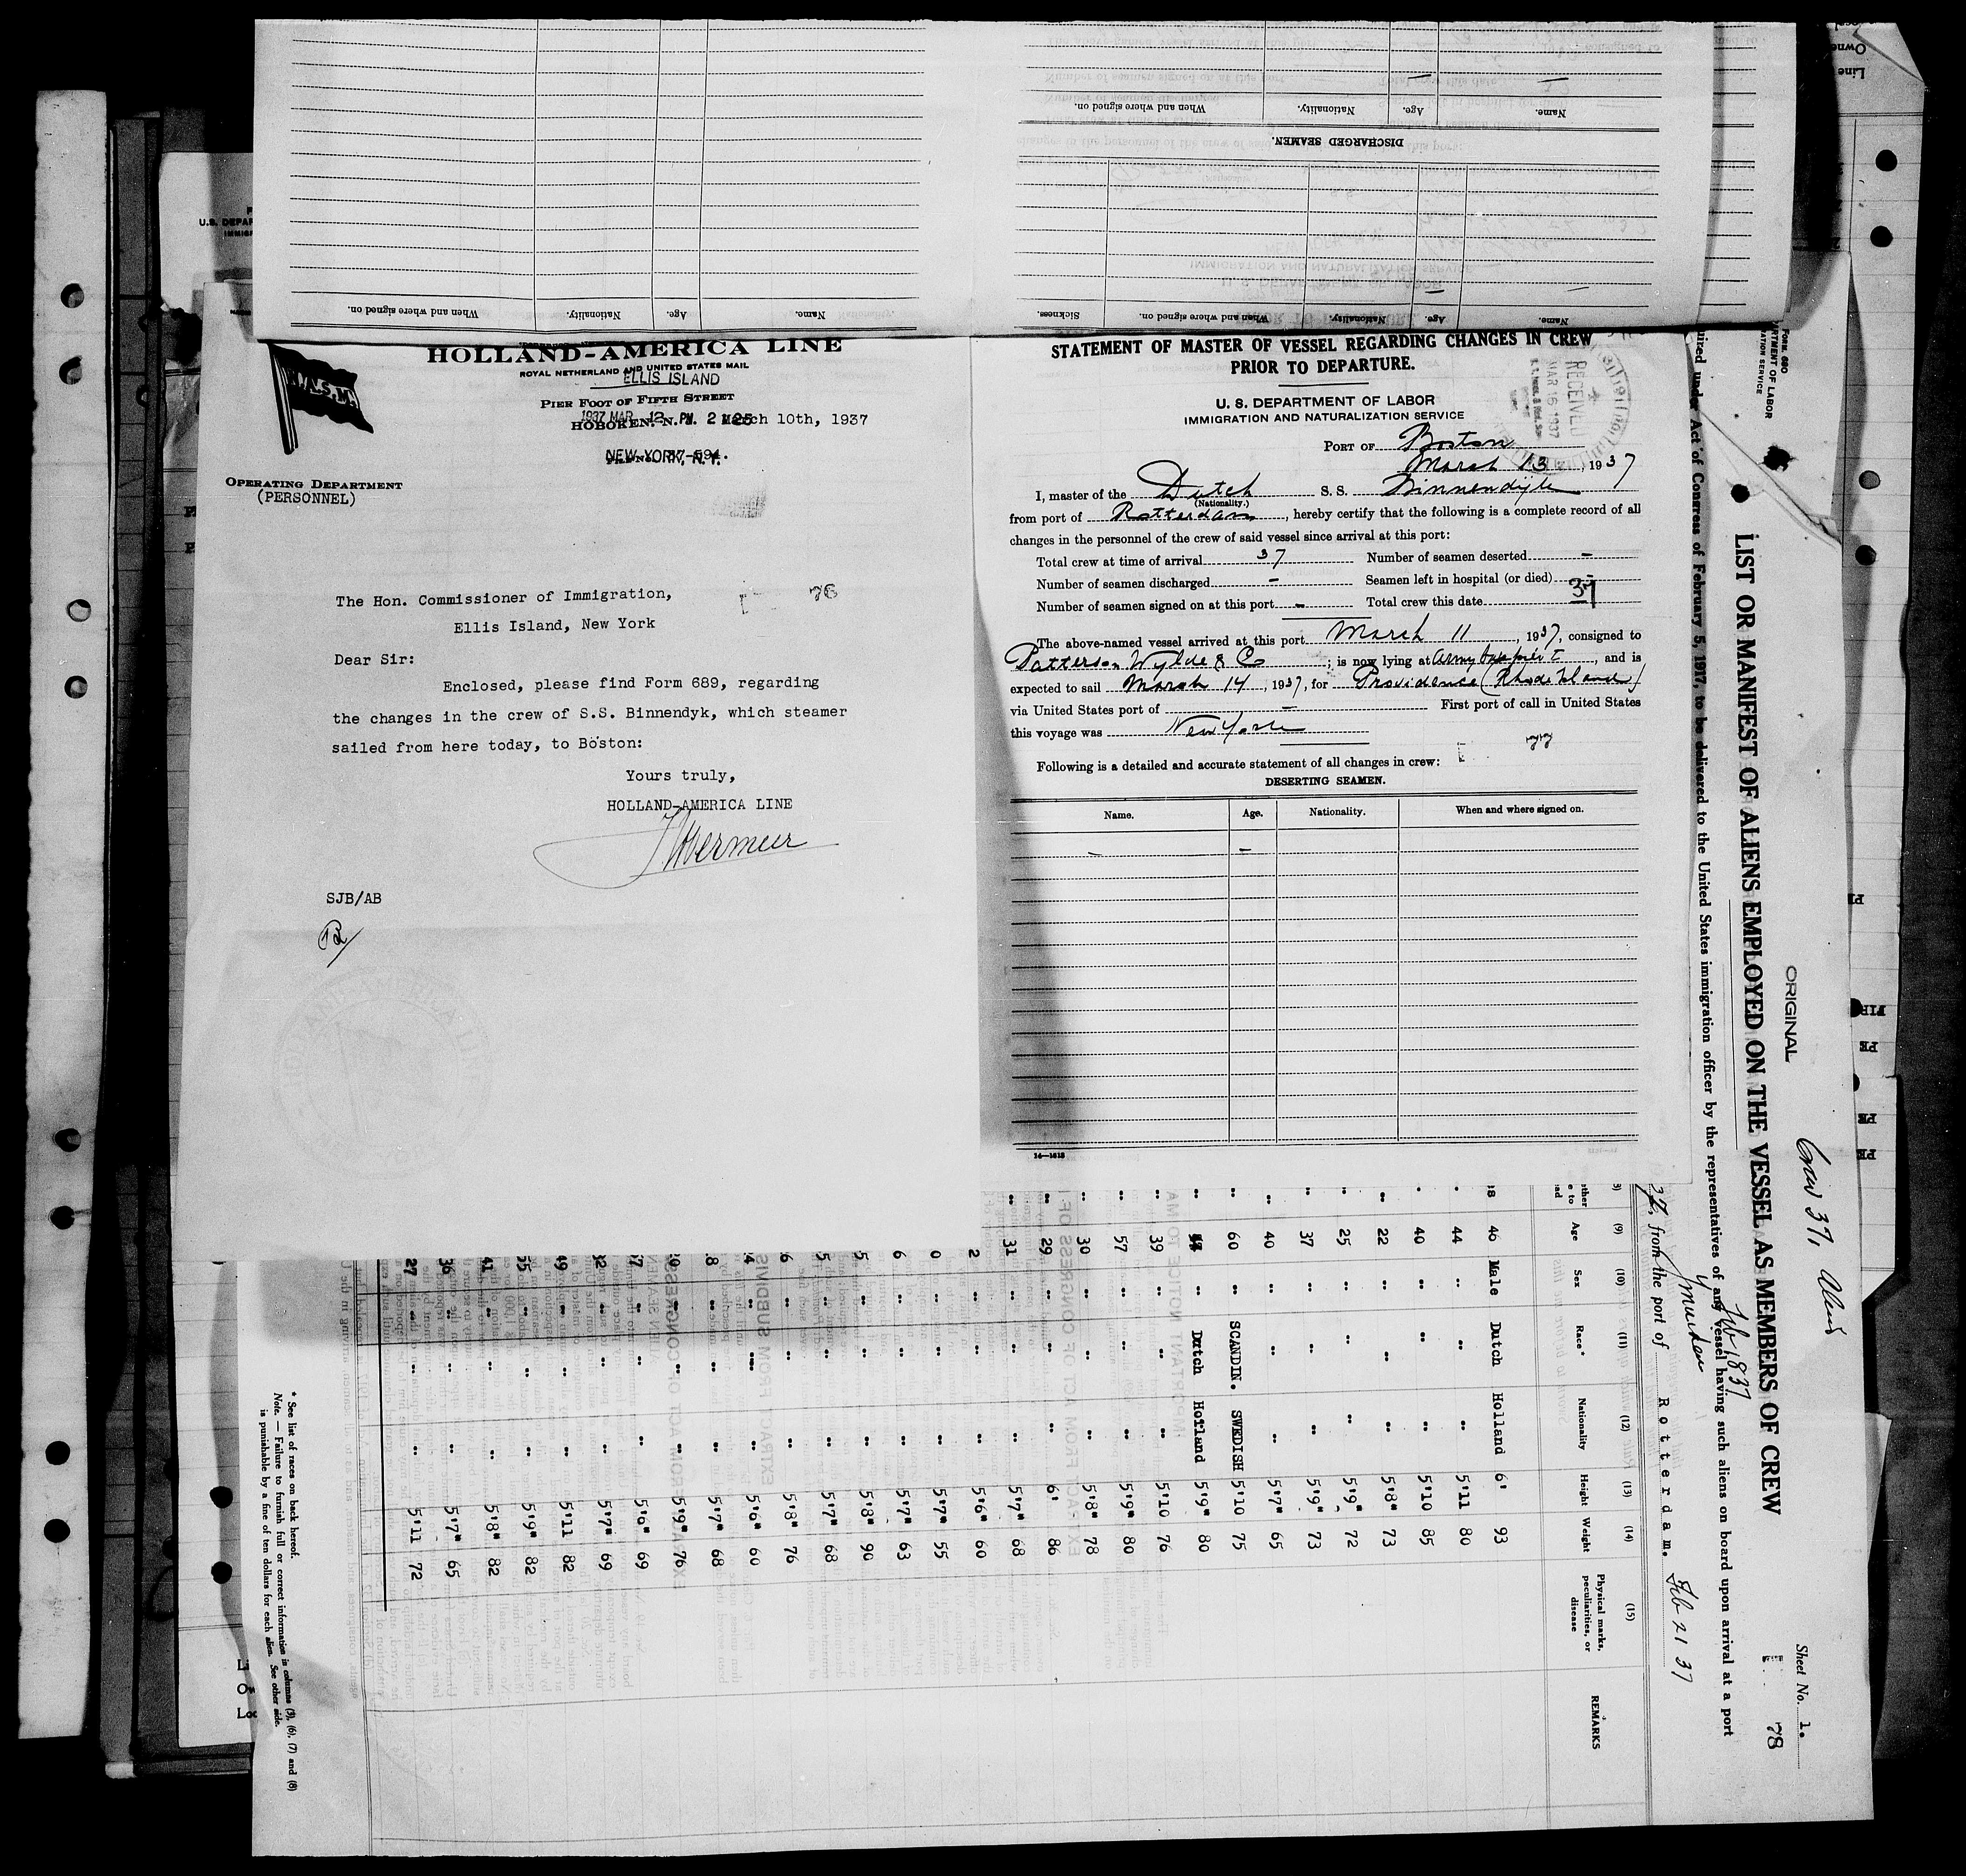 HOLLAND-AMERICA LINE
ROYAL NETHERLAND AND UNITED STATES MAIL
ELLIS ISLAND
PIER FOOT OF FIFTH STREET
1937 MAR 12 PM 2 25
HOBOKEN, N. J. March 10th, 1937
NEW YORK, N.Y.
OPERATING DEPARTMENT
(PERSONNEL)
76
The Hon. Commissioner of Immigration,
Ellis Island, New York
Dear Sir:
Enclosed, please find Form 689, regarding
the changes in the crew of S.S. Binnendyk, which steamer
sailed from here today, to Boston:
Yours truly,
HOLLAND-AMERICA LINE
SJB/AB
When and where signed on.
Nationality.
Age.
Name.
DISCHARGED SEAMEN.
When and where signed on.
Nationality.
Age.
Name.
Sickness.
When and where signed on.
Nationality.
Age.
Name.
STATEMENT OF MASTER OF VESSEL REGARDING CHANGES IN CREW
PRIOR TO DEPARTURE.
RECEIVED
MAR 16 1937
U. S. DEPARTMENT OF LABOR
IMMIGRATION AND NATURALIZATION SERVICE
PORT OF Boston
March 13, 1937
I, master of the Dutch S. S. Binnendijk
(Nationality.)
from port of Rotterdam, hereby certify that the following is a complete record of all
changes in the personnel of the crew of said vessel since arrival at this port:
Total crew at time of arrival 37 Number of seamen deserted -
Number of seamen discharged - Seamen left in hospital (or died) -
Number of seamen signed on at this port - Total crew this date 37
The above-named vessel arrived at this port March 11, 1937, consigned to
Patterson Wylde & Co; is now lying at Army base pier, and is
expected to sail March 14, 1937, for Providence (Rhode Island)
via United States port of - First port of call in United States
this voyage was New York
77
Following is a detailed and accurate statement of all changes in crew:
DESERTING SEAMEN.
Name. Age. Nationality. When and where signed on.
- -
14—1618
ORIGINAL
Crew 37, aliens
Sheet No. 1.
78
LIST OR MANIFEST OF ALIENS EMPLOYED ON THE VESSEL AS MEMBERS OF CREW
uired under Act of Congress of February 5, 1917, to be delivered to the United States immigration officer by the representatives of any vessel having such aliens on board upon arrival at a port
Feb 18 37
Ymuiden
37, from the port of Rotterdam. Feb 21 37
(9) (10) (11) (12) (13) (14) (15)
Age Sex Race * Nationality Height Weight Physical marks, peculiarities, or disease REMARKS
46 Male Dutch Holland 6' 93
44 " " " 5'11 80
40 " " " 5'10 85
22 " " " 5'8" 73
25 " " " 5'9" 72
37 " " " 5'9" 73
40 " " " 5'7" 65
60 " SCANDIN. SWEDISH 5'10 75
" Dutch Holland 5'9" 80
39 " " " 5'10 76
57 " " " 5'9" 80
30 " " " 5'8" 78
29 " " " 6' 86
31 " " " 5'7" 68
2 " " " 5'6" 60
0 " " " 5'7" 55
6 " " " 5'7" 63
5 " " " 5'8" 90
5 " " " 5'7" 68
6 " " " 5'8" 76
4 " " " 5'6" 60
8 " " " 5'7" 68
0 " " " 5'9" 76
7 " " " 5'6" 69
32 " " " 5'7" 69
49 " " " 5'11 82
35 " " " 5'9" 82
41 " " " 5'8" 82
36 " " " 5'7" 65
27 " " " 5'11 72
* See list of races on back hereof.
Note. — Failure to furnish full or correct information is columns (3), (6), (7) and (8)
is punishable by a fine of ten dollars for each alien. See other side.